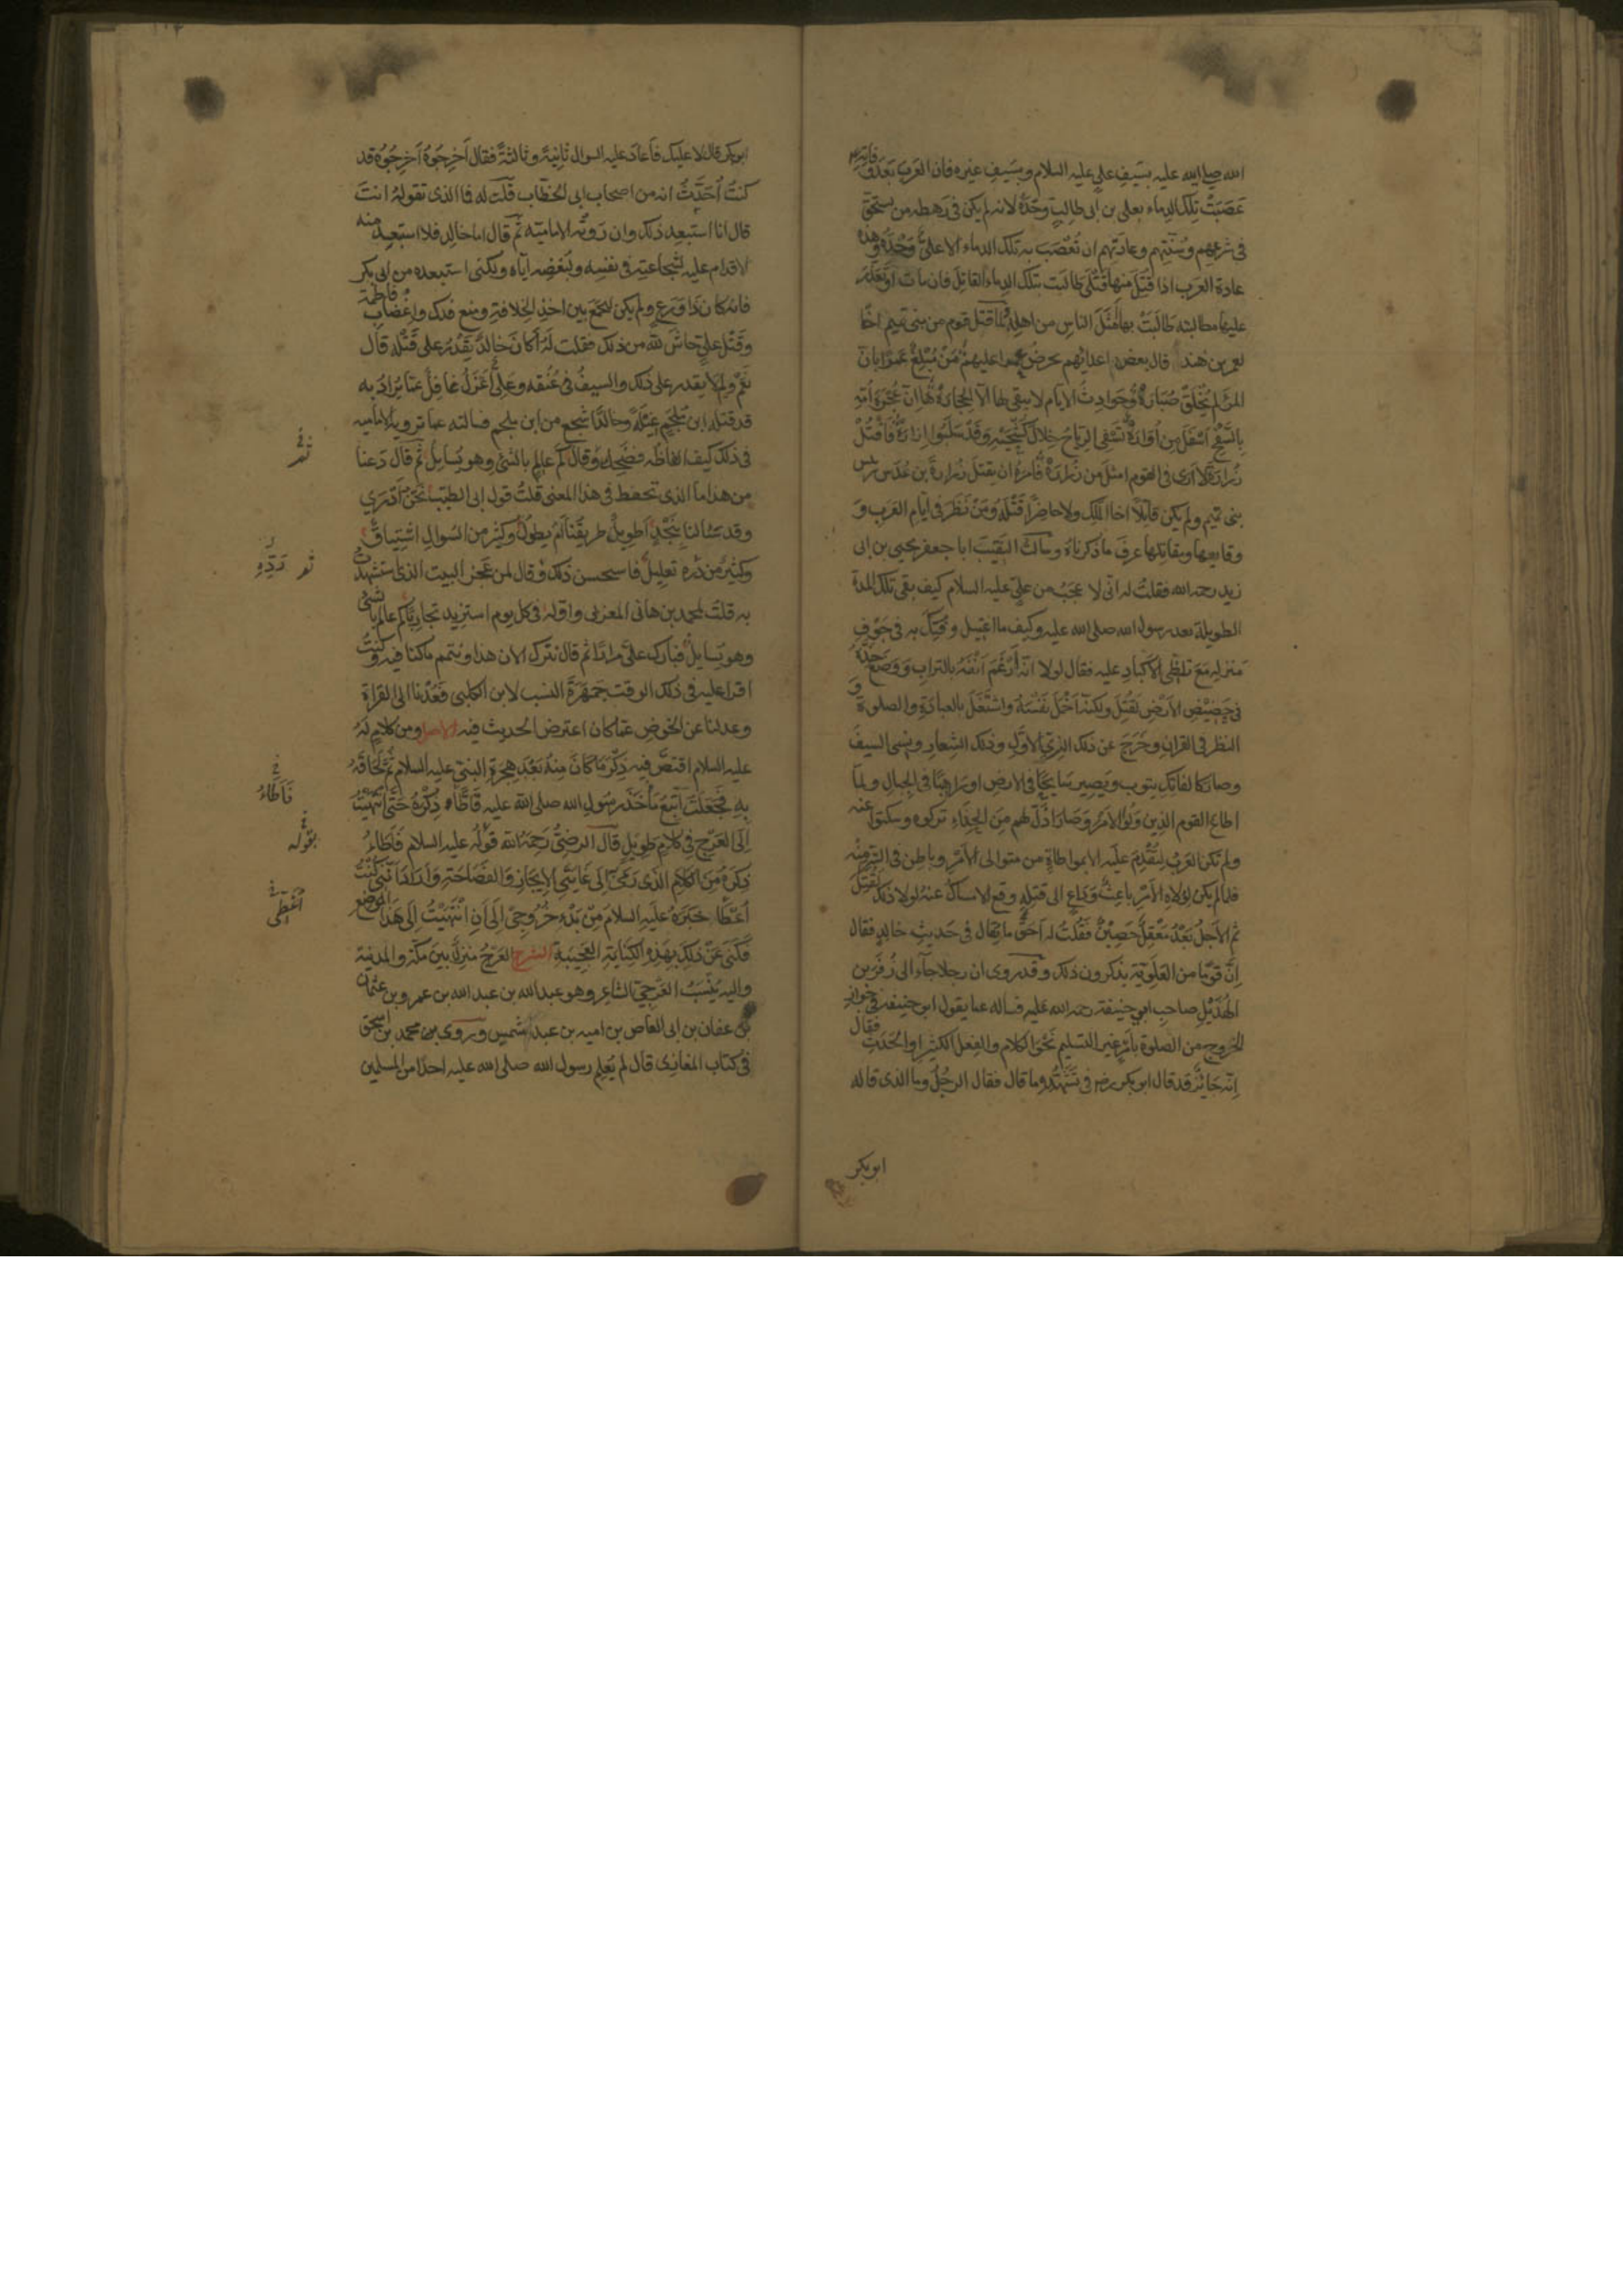 الله صلى الله عليه بسَيفِ علي عليه السلام وبسَيفِ غيره فان العَربَ بَعدَ وفاته
عَصَبَتْ تِلك الدِماء بعلى بن ابى طالبٍ وحْدَهُ لانه لم يكن فى رَهطه من يستحق
فى شرعِهم وسُنّتِهم وعادتهم ان تُعْصَبَ به تلك الدماء الا علىٌّ وَحْدَهُ وهذه
عادة العَرب اذا قُتِلَ منها قَتْلَى طالبَت بتلك الدِماء القاتِلَ فان مات او تَعَذَّر
عليها مطالبته طَالَبَتْ بها اَمْثَلَ الناسِ من اهلِه لمّا قتَل قوم من بنى تميمٍ اخًا
لعمرِ بن هند قال بعضُ اعدائهم يحرضُ عمرًا عليهمْ مَنْ مُبْلِغٌ عَمْرًا بانّ
المَرْءَ لم يُخْلَقْ صُبَارَةْ وحَوادِثُ الايّام لا يبقى لها الّا الحِجارَةْ ها اِنّ عُجْزَةَ اُمّهِ
بِالسَّفْحِ اَسْفَلَ مِن اُوَارَةْ تَسْفِى الرِياحُ خِلالَ كَشْحَيْهِ وَقَدْ سَلَبُوا اِزارَهْ فَاقْتُلْ
زُرَارَةَ لا اَرَى فى القومِ اَمْثَلَ من زُرَارَةْ فامَرَهُ ان يقتلَ زُرارةَ بن عُدَس رئيس
بنى تميمٍ ولم يكن قاتِلًا اخا الملك ولا حاضِرًا قَتْلَهُ ومَنْ نَظَرَ فى اَيّامِ العَرَب و
وقايعِها ومقاتِلها عرفَ ما ذكرناه وسألتُ النَّقيبَ ابا جعفر يحيى بن ابى
زيد رحمه الله فقلتُ له انّى لا عجبُ من علىٍّ عليه السلام كيف بقى تلك المدة
الطويلة بعد رسول الله صلى الله عليه وكيف ما اغتِيلَ وفُتِكَ به فى جَوْفِ
منزلِه مَعَ تلظّى الاكبادِ عليه فقال لولا انه اَرْغَمَ اَنْفَهُ بالترابِ وَوَضَعَ خَدَّهُ
فى حَضِيْضِ الاَرْضِ لقُتِلَ ولكنه اَخْمَلَ نَفْسَهُ واشتَغَلَ بالعبادَةِ والصلوة و
النظر فى القران وخَرَجَ عن ذلك الزِىّ الاوّلِ وذلك الشِعارِ ونسى السيفَ
وصار كالفاتِكِ يتوب ويَصِير سَايحًا فى الارضِ او رَاهبًا فى الجبالِ ولمّا
اطاعَ القوم الذِين وَلُوا الامرَ وَصَارَ اذلّ لهم مِنَ الحِذاءِ تركوه وسكتوا عنه
ولم تكن العَربُ لِتُقْدِمَ عليه الا بمواطاةٍ من متولى الاَمْرِ وباطِنٍ فى السّرِّ منه
فلما لم يكن لولاةِ الاَمرِ باعِثٌ وداعٍ الى قتلِه وقع الامساكُ عنه ولولا ذلك لقُتِلَ
ثم الاَجلُ بَعْدُ مَعْقِلٌ حَصِيْنٌ فَقُلْتُ له اَحَقٌّ ما يقال فى حَديثِ خالدٍ فقال
اِنّ قوْمًا من العَلَوِيّة يذكرون ذلك وقد روى ان رجلا جآء الى زُفَرَ بن
الهُذَيْلِ صاحبِ ابى حنيفة رحمه الله عليه فساله عما يقول ابو حنيفة فى جوازِ
الخروجِ من الصلوة بامْرٍ غيرِ التسليمِ نَحْوَ الكلامِ والفِعلِ الكثيرِ او الحَدَثِ فقال
اِنّه جَائزٌ قد قال ابو بكر رضه فى تَشَهُّدِهِ ما قال فقال الرجُلُ وما الذى قاله
ابو بكر
ابو بكر قال لا عليك فاَعادَ عليه السوال ثانيةً وثالثةً فقال اَخرِجُوهُ اَخرِجُوهُ قد
كنتُ اُحَدَّثُ انه من اصحاب ابى الخطّاب قلتُ له فما الذى تقوله انتَ
قال انا استَبعِد ذلك وان رَوَتْه الاماميّة ثم قال اما خالِد فلا استبعِد منه
الاقدام عليه لشجاعتِه فى نفسِه ولبُغضِه ايّاه ولكنى استبعده من ابى بكر
فانه كان ذا وَرَعٍ ولم يكن ليجمَع بين اخذِ الخِلافةِ ومنعِ فدك واِغضابِ فاطمة
وقَتْلِ علىٍّ حاشَ للهِ من ذلك فقلت له اَكانَ خالدٌ يَقْدِرُ على قَتْلِه قال
نَعَمْ ولِمَ لا يقدِر على ذلك والسيفُ فى عُنُقِه وعلىٌّ اَعْزَلُ غافِلٌ عمّا يُرادُ به
قد قتله ابن مُلْجَمٍ غِيْلَةً وخالدٌ اشجع من ابن ملجم فسالته عما ترويه الامامية
فى ذلك كيف الفاظُه فضَحِكَ وقال كَمْ عالِمٍ بالشئ وهو يُسايِلُ ثم قال دَعنا
من هذا ما الذى تحفظ فى هذا المعنى قلتُ قول ابى الطيّب نحنُ اَدْرَى
وقد سَالنا بِنَجْدٍ اَطويلٌ طريقُنا اَمْ يطولُ وكثيرٌ من السُوالِ اشتِياقٌ
وكثيرٌ من رَدّه تعليلٌ فاستحسن ذلك وقال لمن عَجُز البيت الذى استَشهَدتُ
به قلتُ لمحمد بن هانى المغربى واوله فى كل يوم استزيد تجاربًا كم عالمٍ بالشئ
وهو يُسايِلُ فبارك علىَّ مرارًا ثم قال نترك الان هذا ونُتمم ما كنا فيه وكنتُ
اقرأ عليه فى ذلك الوقت جَمْهَرَةَ النسب لابن الكلبى فَعُدْنا الى القراءة
وعدلنا عن الخوضِ عمّا كان اعترض الحديث فيه الاصل ومن كلامٍ لهُ
عليه السلام اقتصَّ فِيه ذِكْرَ مَا كَانَ مِنهُ بَعْدَ هِجرَةِ النبىّ عليه السلام ثُمَّ لَحَاقَهُ
بِهِ فَجَعَلْتُ اَتَّبِعُ مَأْخَذَ رَسُولِ الله صلى الله عليه فَاَطَأُ ذِكْرَهُ حَتّى انتَهَيْتُ
اِلَى العَرْجِ فِى كلامٍ طَوِيْلٍ قالَ الرضِىُّ رَحِمَهُ الله قَوْلُه عليه السلام فَاَطَأُ
ذِكرَهُ مِنَ الكَلامِ الَّذى رَمَى اِلى غَايَتَىِ الاِيْجازِ وَالفَصَاحَةِ وَاَرادَ اَنَّنِى كُنْتُ
اُعْطَا خَبَرَهُ عليه السلام مِنْ بَدْءِ خُرُوجِى اِلَى اَنِ انْتَهَيْتُ اِلَى هَذا الموضع
فَكَنَى عَنْ ذلِكَ بِهَذِهِ الكِنايَةِ العَجِيبَةِ الشرح العَرْجُ منزلٌ بينَ مكة والمدينة
واليه يُنْسَبُ العَرْجىّ الشاعِر وهو عبد الله بن عبد الله بن عمرو بن عثمان
بن عفان بن ابى العاص بن اميه بن عبد شمس ورَوى محمد بن اسحق
فى كتاب المغازى قال لم يُعلِم رسول الله صلى الله عليه احدًا من المسلمين
رَدِّهِ
فَاَطَأُ
بقوله
اُعْطِى